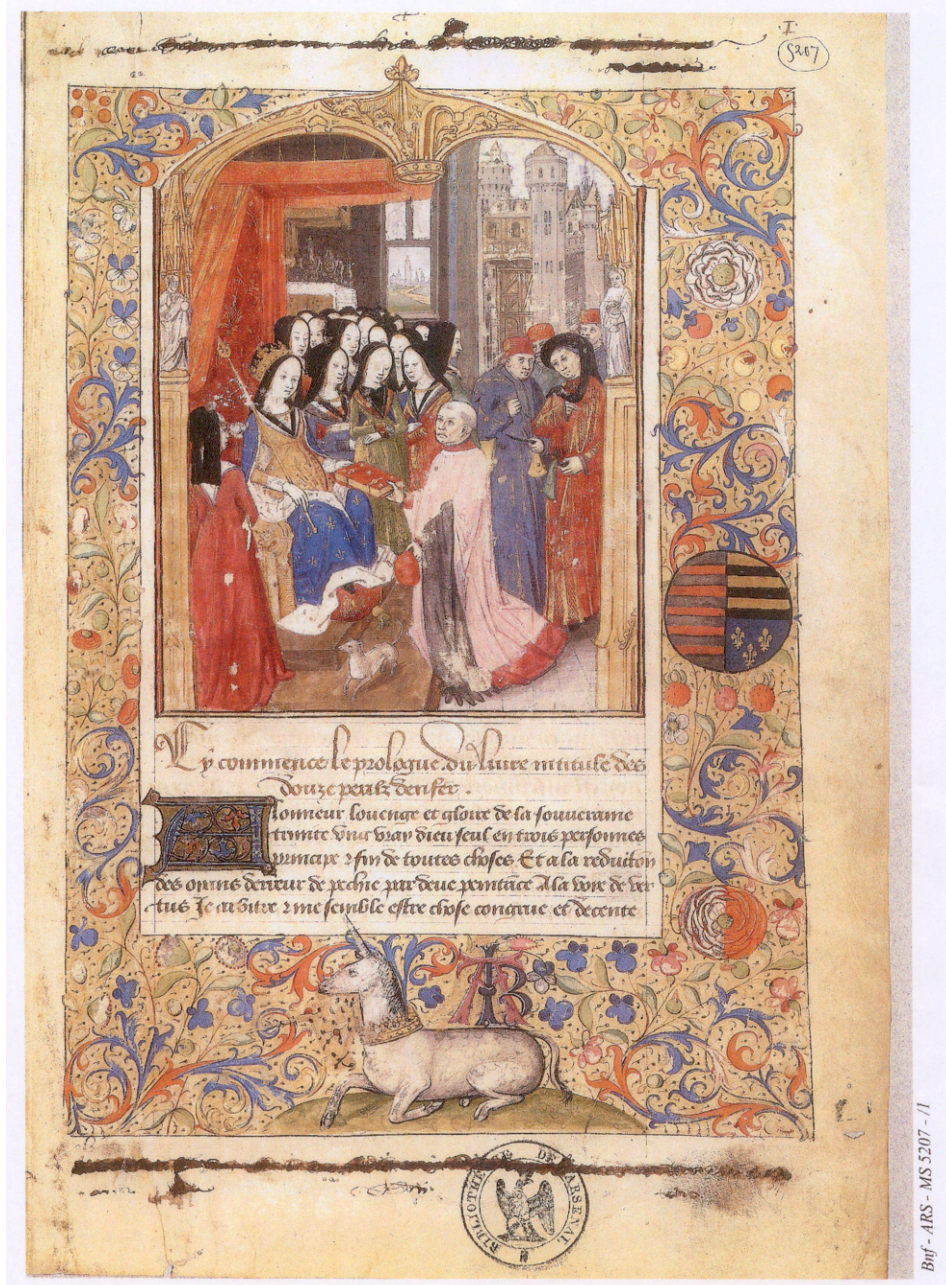 I
5207
Cy commence le prologue du livre intitule des
douze perilz denfer .
A lonneur louenge et gloire de la souveraine
trinite vng vray dieu seul en trois personnes
principe & fin de toutes choses Et a la reduction
des omains de pechie par deue penitāce A la voye de ver
tus Je & me semble estre chose congrue et decente
BIBLIOTHEQUE DE L'ARSENAL
Bnf - ARS - MS 5207 - /1